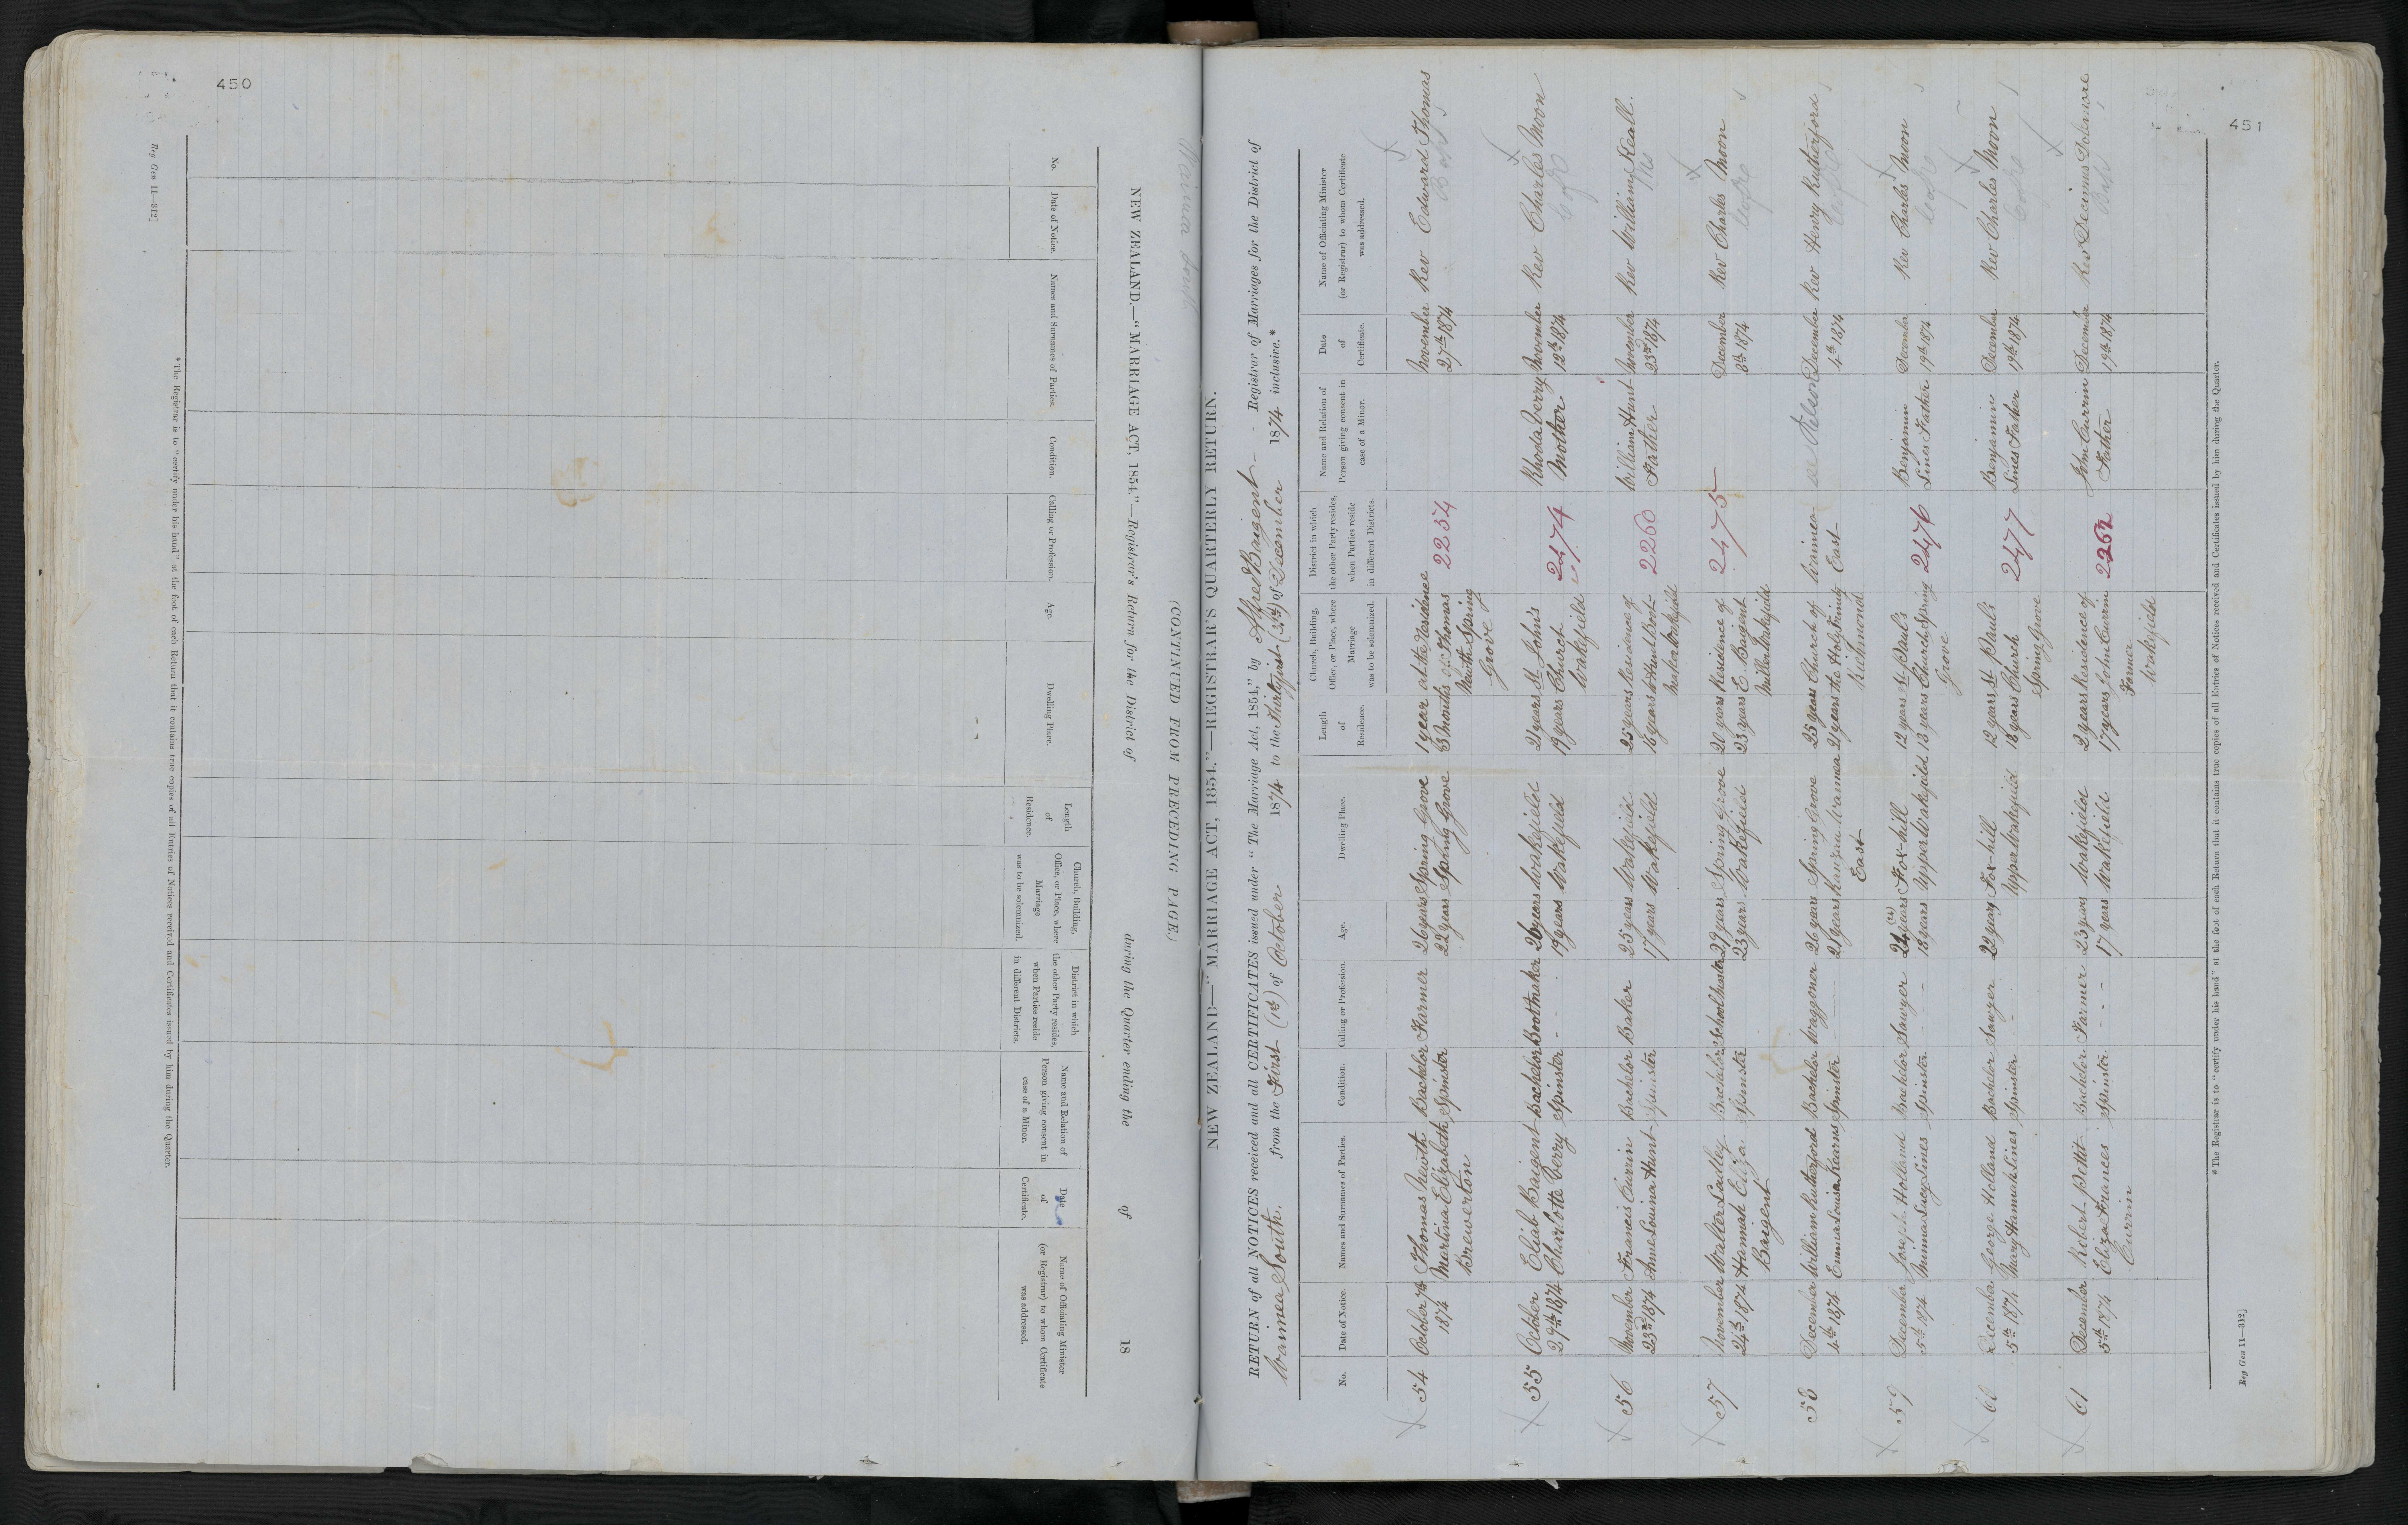 450
Reg Gen 11—312]
NEW ZEALAND.—"MARRIAGE ACT, 1854."—Registrar's Return for the District of during the Quarter ending the of 18
(CONTINUED FROM PRECEDING PAGE.)
No.
Date of Notice.
Names and Surnames of Parties.
Condition.
Calling or Profession.
Age.
Dwelling Place.
Length
of
Residence.
Church, Building,
Office, or Place, where
Marriage
was to be solemnized.
District in which
the other Party resides,
when Parties reside
in different Districts.
Name and Relation of
Person giving consent in
case of a Minor.
Date
of
Certificate.
Name of Officiating Minister
(or Registrar) to whom Certificate
was addressed.
* The Registrar is to "certify under his hand" at the foot of each Return that it contains true copies of all Entries of Notices received and Certificates issued by him during the Quarter.
Waimea South
451
NEW ZEALAND—"MARRIAGE ACT, 1854."—REGISTRAR'S QUARTERLY RETURN.
RETURN of all NOTICES received and all CERTIFICATES issued under "The Marriage Act, 1854," by Alfred Baigent Registrar of Marriages for the District of
Waimea South. from the First (1st) of October 1874 to the Thirty first (31st) of December 1874 inclusive.*
No.
Date of Notice.
Names and Surnames of Parties.
Condition.
Calling or Profession.
Age.
Dwelling Place.
Length
of
Residence.
Church, Building,
Office, or Place, where
Marriage
was to be solemnized.
District in which
the other Party resides,
when Parties reside
in different Districts.
Name and Relation of
Person giving consent in
case of a Minor.
Date
of
Certificate.
Name of Officiating Minister
(or Registrar) to whom Certificate
was addressed.
54 October 7th Thomas Newth Bachelor Farmer 26 years Spring Grove 1 year at the Residence November Rev Edward Thomas
1874 Martina Elizabeth Spinster 22 years Spring Grove 8 Months of Thomas 2234 27th 1874 Bap
Brewerton Newth Spring
Grove
55 October Eliab Baigent Bachelor Bootmaker 26 years Wakefield 21 years St John's Rhoda Perry November Rev Charles Moon
29th 1874 Charlotte Perry Spinster - - 19 years Wakefield 19 years Church 2474 Mother 12th 1874 C of E
Wakefield
56 November Francis Currin Bachelor Baker 25 years Wakefield 25 years Residence of William Hunt November Rev William Keall.
23rd 1874 Anne Louina Hunt Spinster 17 years Wakefield 16 years W Hunt Boot- 2260 Father 23rd 1874
maker Wakefield
57 November Walter Ladley Bachelor Schoolmaster 29 years Spring Grove 20 years Residence of 2475 December Rev Charles Moon
24th 1874 Hannah Eliza Spinster 23 years Wakefield 23 years E. Baigent 8th 1874 C of E
Baigent Miller Wakefield
58 December William Rutherford Bachelor Waggoner 26 years Spring Grove 25 years Church of Waimea December Rev Henry Rutherford
4th 1874 Emma Louisa Kearns Spinster 21 years Waimea 21 years the Holy Trinity East 4th 1874
East Richmond
59 December Joseph Holland Bachelor Sawyer 24 years (24) Fox-hill 12 years St Paul's Benjamin December Rev Charles Moon
5th 1874 Minna Lucy Lines Spinster - - 18 years Upper Wakefield 18 years Church Spring 2476 Lines Father 19th 1874 C of E
Grove
60 December George Holland Bachelor Sawyer 22 years Fox-hill 12 years St Paul's Benjamin December Rev Charles Moon
5th 1874 Mary Hannah Lines Spinster Upper Wakefield 18 years Church 2477 Lines Father 19th 1874 C of E
Spring Grove
61 December Robert Pettit Bachelor Farmer 23 years Wakefield 2 years Residence of John Currin December Rev Decimus Dolamore
5th 1874 Eliza Frances Spinster - - - 17 years Wakefield 17 years John Currin 2262 Father 19th 1874 Bap
Currin Farmer
Wakefield
* The Registrar is to "certify under his hand" at the foot of each Return that it contains true copies of all Entries of Notices received and Certificates issued by him during the Quarter.
Reg Gen 11—312]